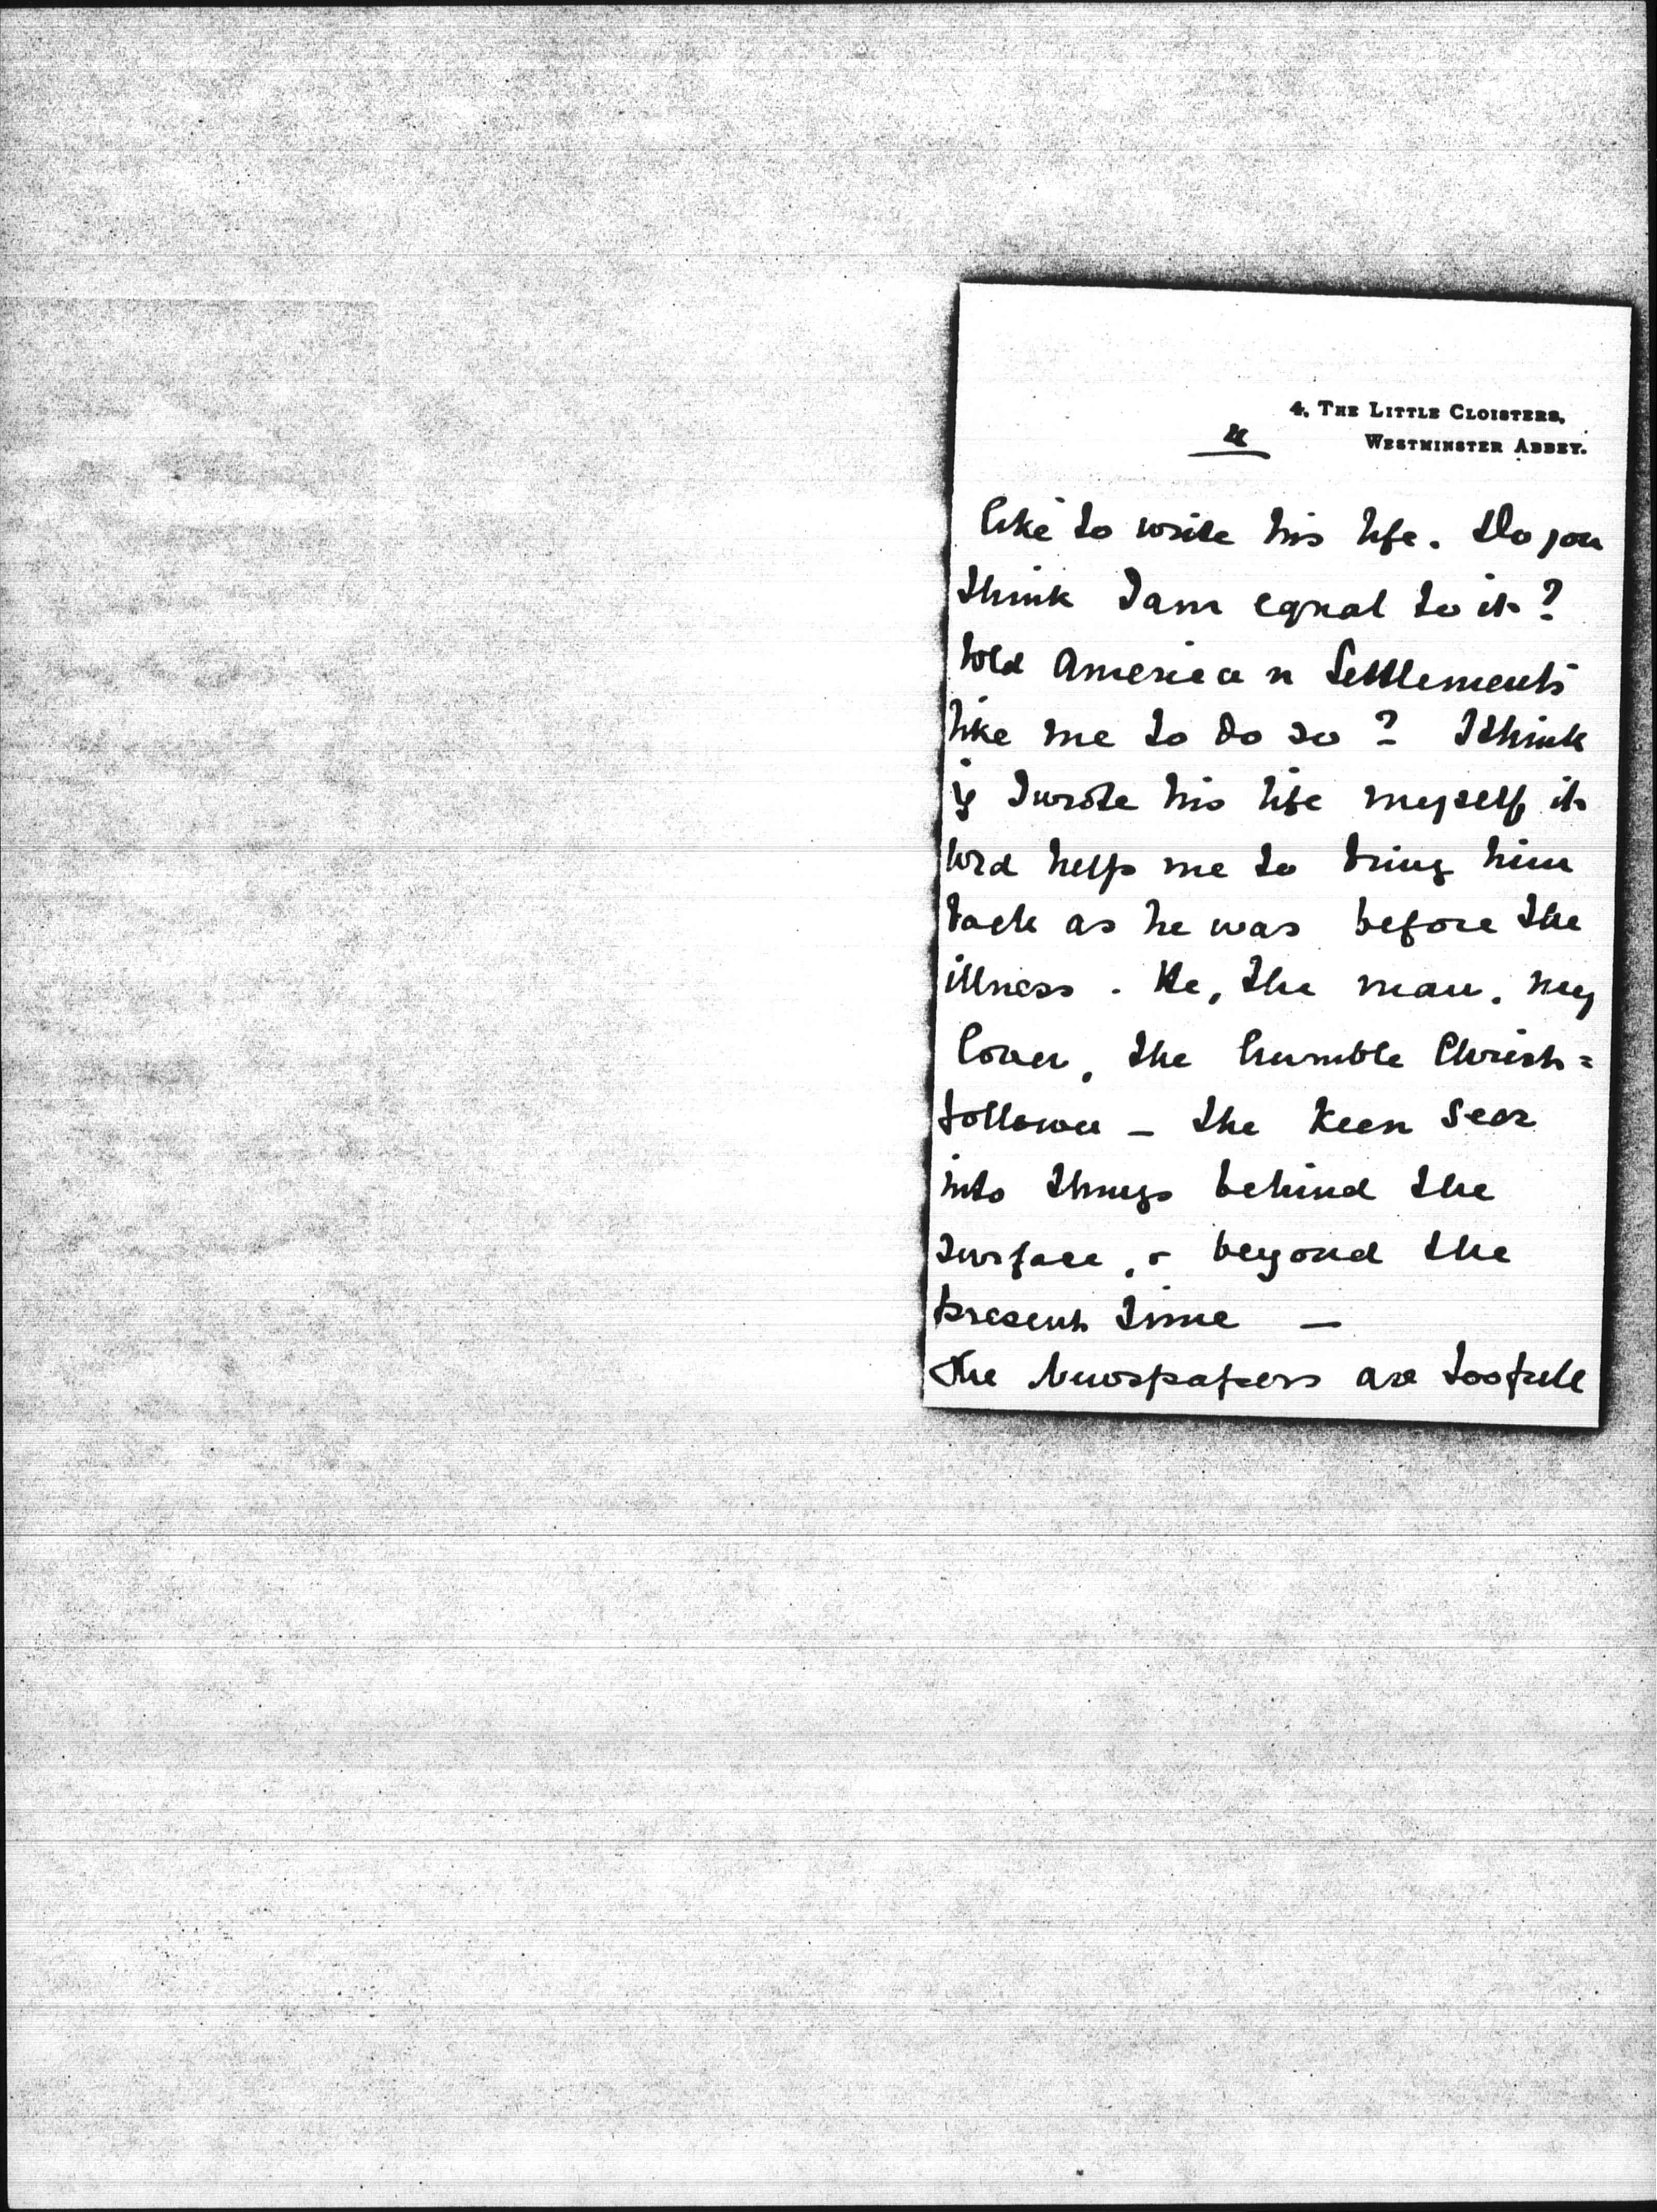 4, THE LITTLE CLOISTERS,
WESTMINSTER ABBEY.
like to write his life. Do you
think I am equal to it?
Wld American Settlements
like me to do so? I think
if I wrote his life myself it
wld help me to bring him
back as he was before the
illness. He, the man, my
lover, the humble Christ=
follower – the keen seer
into things behind the
surface, & beyond the
present time –
The Newspapers are too full